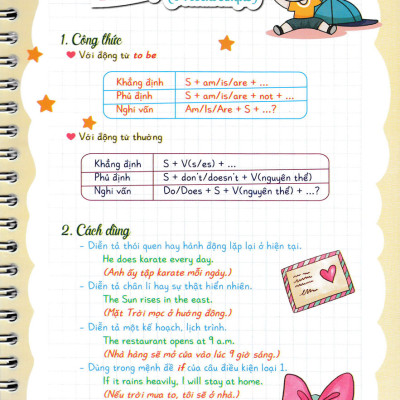 1. Công thức
Với động từ to be
Khẳng định S + am/is/are + ...
Phủ định S + am/is/are + not + ...
Nghi vấn Am/Is/Are + S + ...?
Với động từ thường
Khẳng định S + V(s/es) + ...
Phủ định S + don't/doesn't + V(nguyên thể)
Nghi vấn Do/Does + S + V(nguyên thể) + ...?
2. Cách dùng
- Diễn tả thói quen hay hành động lặp lại ở hiện tại.
He does karate every day.
(Anh ấy tập karate mỗi ngày.)
- Diễn tả chân lí hay sự thật hiển nhiên.
The Sun rises in the east.
(Mặt Trời mọc ở hướng đông.)
- Diễn tả một kế hoạch, lịch trình.
The restaurant opens at 9 a.m.
(Nhà hàng sẽ mở cửa vào lúc 9 giờ sáng.)
- Dùng trong mệnh đề if của câu điều kiện loại 1.
If it rains heavily, I will stay at home.
(Nếu trời mưa to, tôi sẽ ở nhà.)